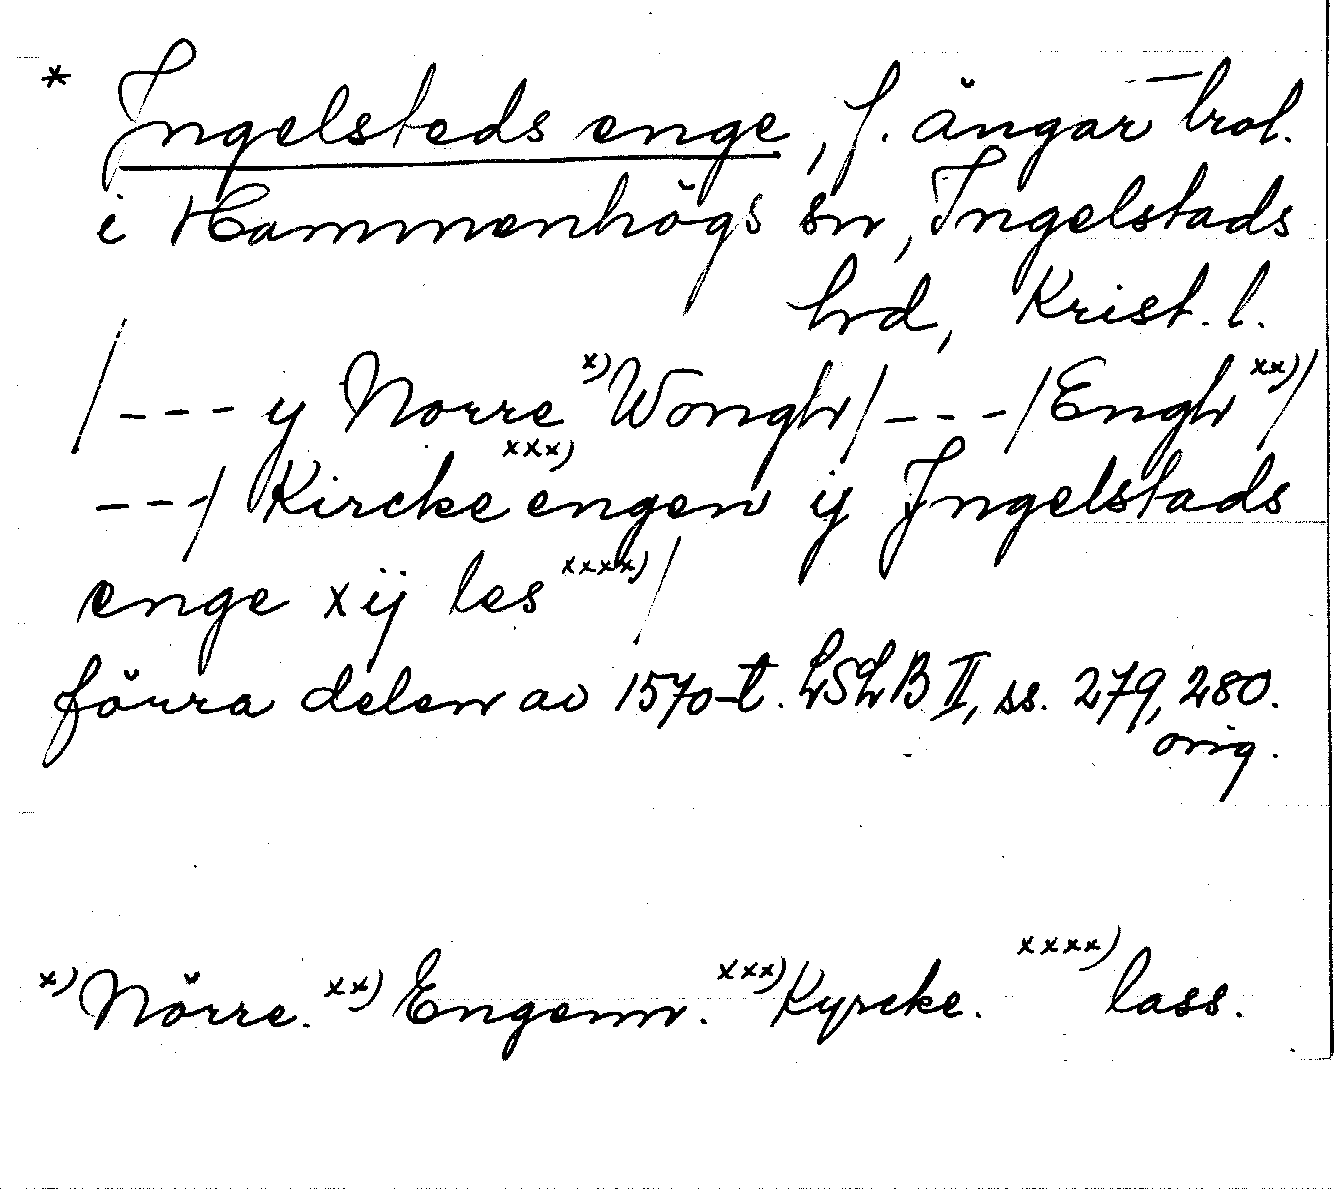 * Ingelsteds enge, f. ängar trol.
i Hammenhögs sn, Ingelstads
hrd, Krist. l.
/--- y Norre x) Wongh/---/Engh xx)/
---/ Kircke xxx) engen ij Jngelstads
enge xij les xxxx)/
förra delen av 1570-t. LSLB II, ss. 279, 280.
orig.
x) Nörre. xx) Engenn. xxx) Kyrcke. xxxx) lass.